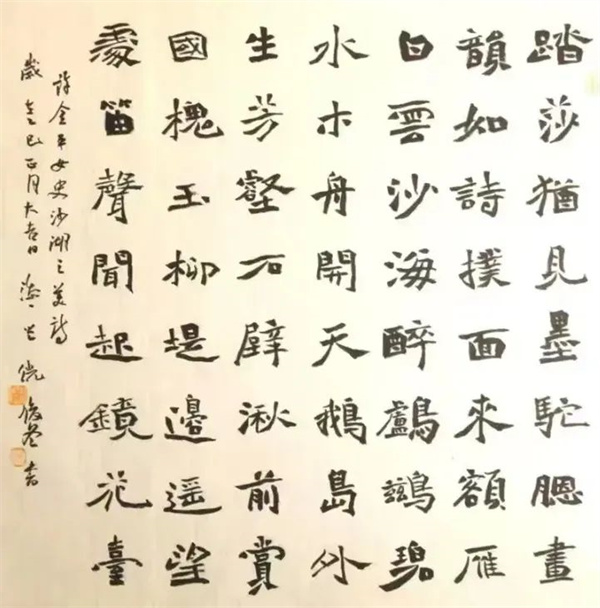 踏莎猶見墨駝腮畫
韻如詩撲面來額雁
白雲沙海醉鸕鷀碧
水木舟開天鵝島外
生芳壑石壁湫前賞
國槐玉柳堤邊遥望
處笛聲聞起鏡花臺
許金平女史沙湖之美詩
歲癸巳正月大吉日